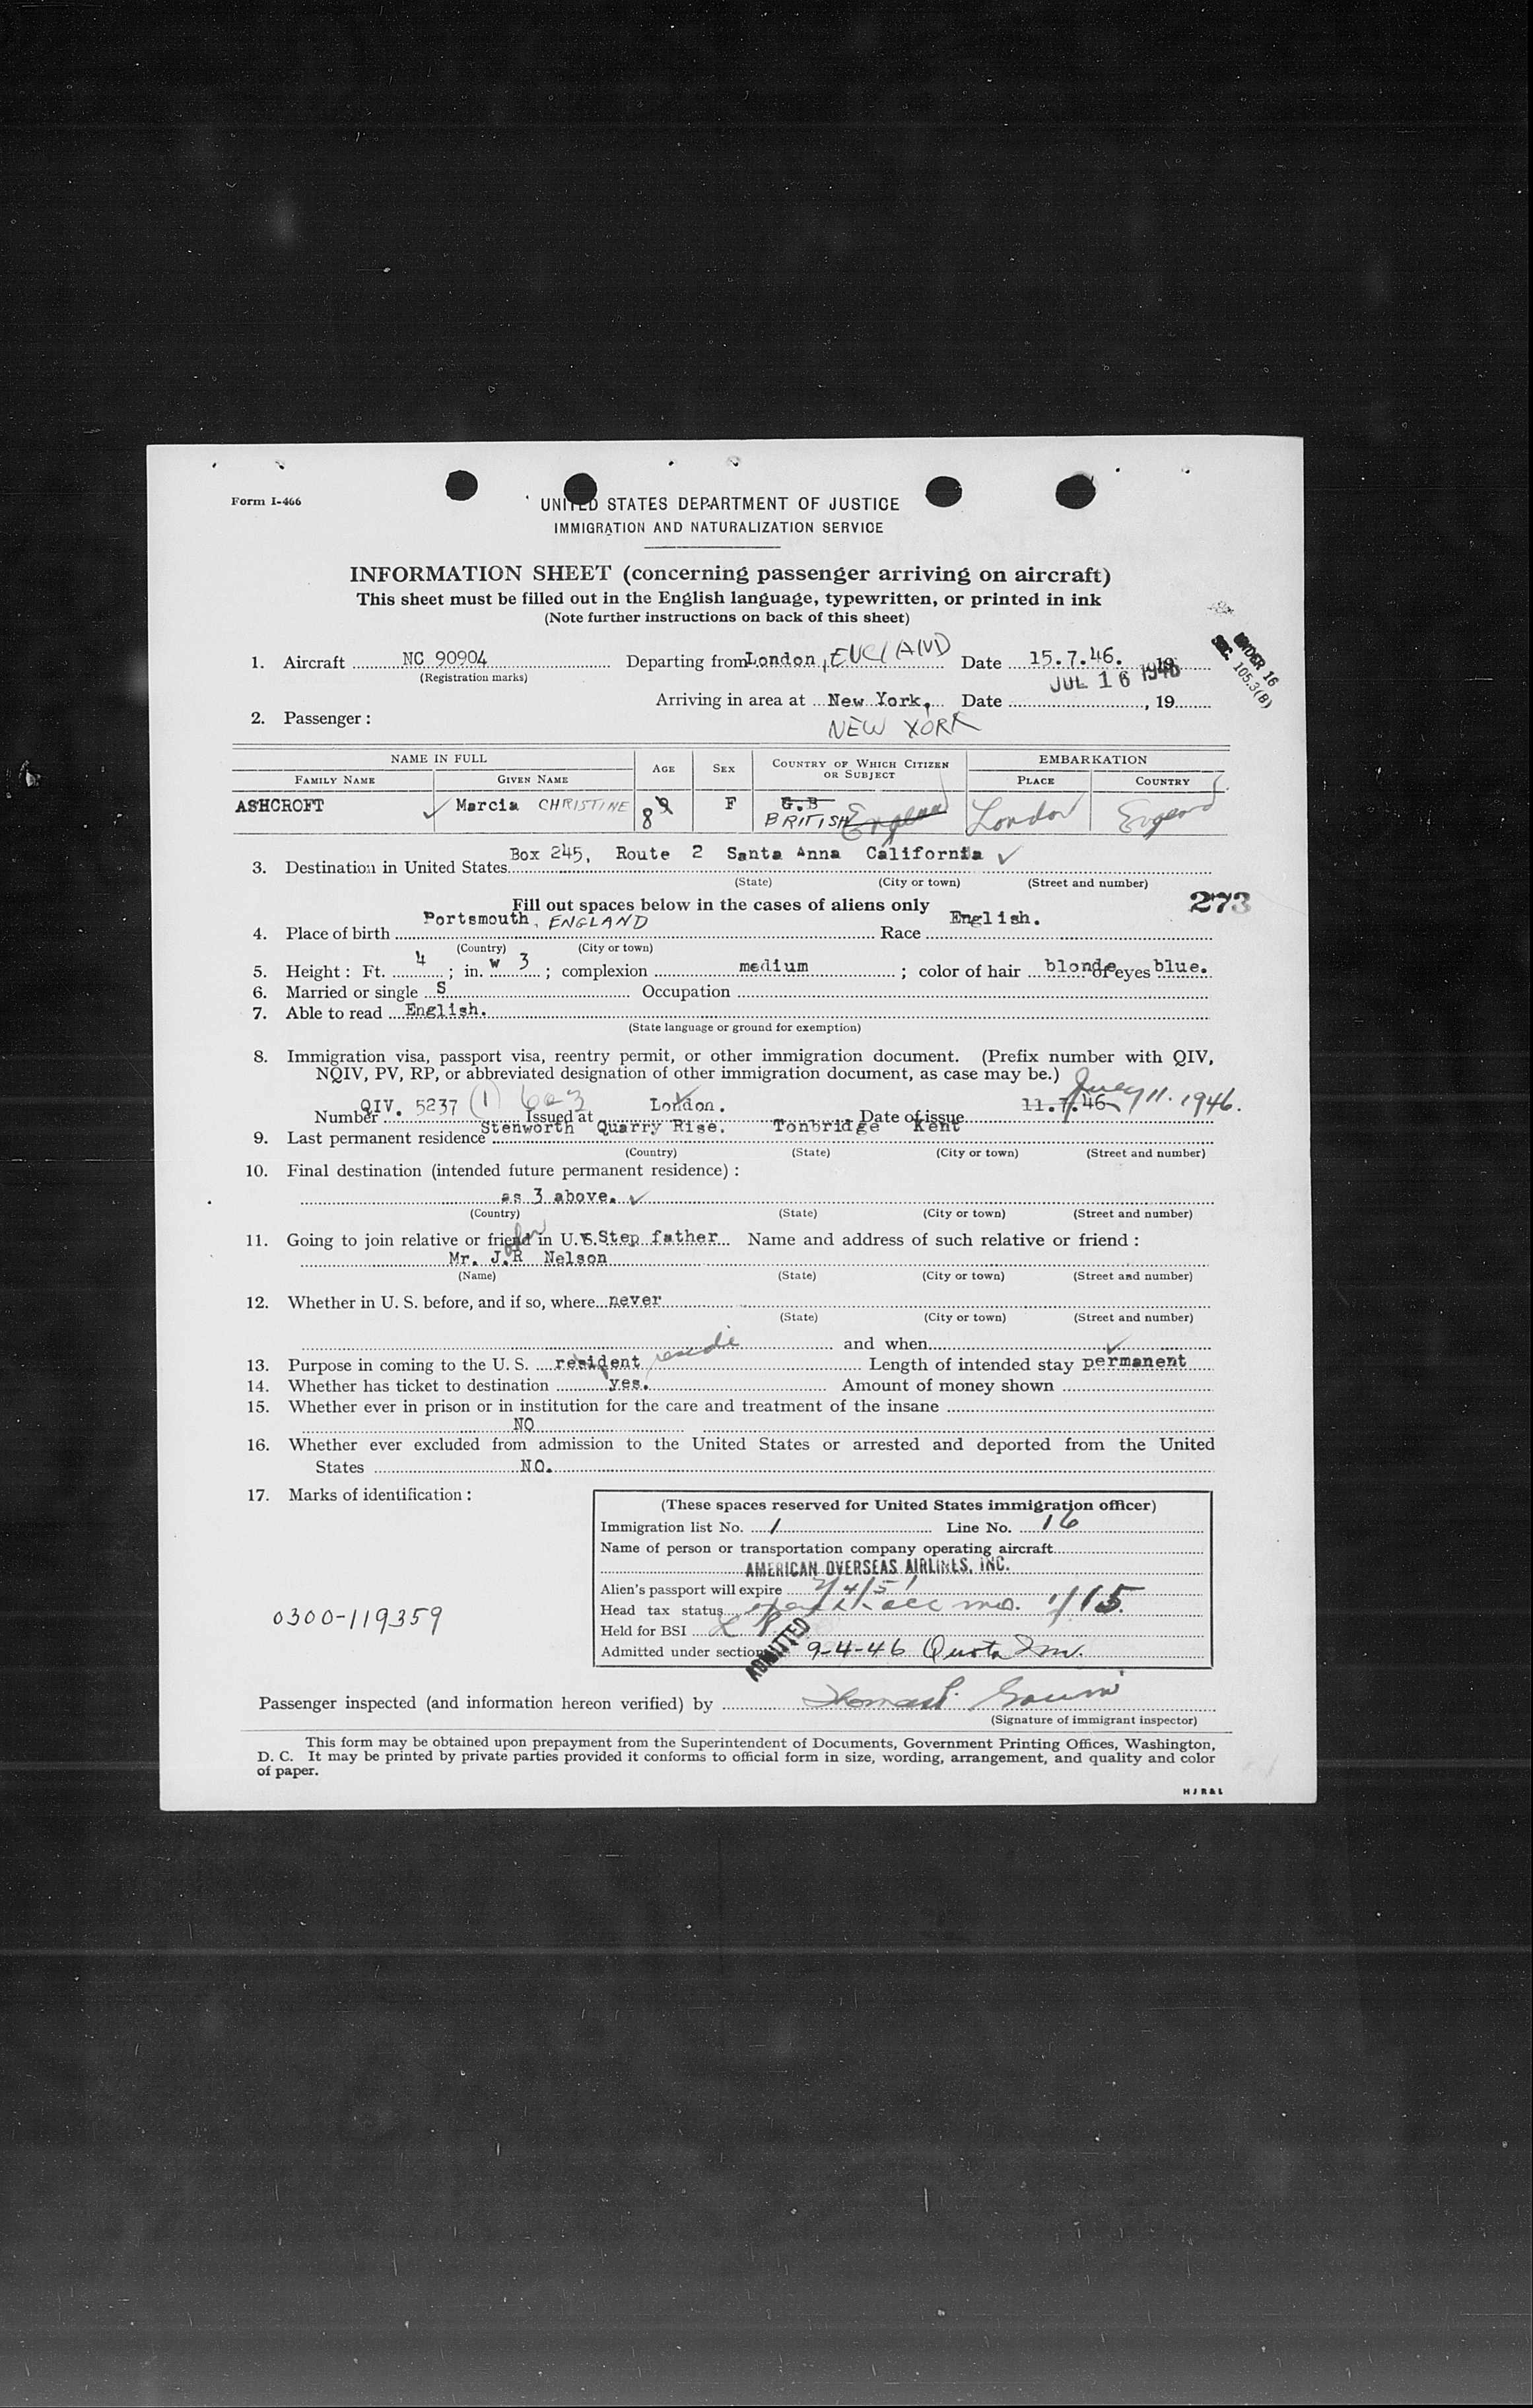 Form I-466
UNITED STATES DEPARTMENT OF JUSTICE
IMMIGRATION AND NATURALIZATION SERVICE
INFORMATION SHEET (concerning passenger arriving on aircraft)
This sheet must be filled out in the English language, typewritten, or printed in ink
(Note further instructions on back of this sheet)
UNDER 16
SEC. 105.3(B)
1. Aircraft NC 90904 Departing from London, ENGLAND Date 15.7.46. 19
(Registration marks)
JUL 16 1946
Arriving in area at New York, Date , 19
NEW YORK
2. Passenger:
NAME IN FULL AGE SEX COUNTRY OF WHICH CITIZEN OR SUBJECT EMBARKATION
FAMILY NAME GIVEN NAME PLACE COUNTRY
ASHCROFT ✓ Marcia CHRISTINE 8 9 F G.B London England
BRITISH England
Box 245, Route 2 Santa Anna California ✓
3. Destination in United States
(State) (City or town) (Street and number)
273
Fill out spaces below in the cases of aliens only
4. Place of birth Portsmouth, ENGLAND Race English.
(Country) (City or town)
5. Height: Ft. 4; in. w 3; complexion medium; color of hair blonde of eyes blue.
6. Married or single S Occupation
7. Able to read English.
(State language or ground for exemption)
8. Immigration visa, passport visa, reentry permit, or other immigration document. (Prefix number with QIV,
NQIV, PV, RP, or abbreviated designation of other immigration document, as case may be.)
Number QIV. 5237 (1) 603 Issued at London. Date of issue 11.7.46 July 11. 1946.
9. Last permanent residence Stenworth Quarry Rise. Tonbridge Kent
(Country) (State) (City or town) (Street and number)
10. Final destination (intended future permanent residence):
as 3 above. ✓
(Country) (State) (City or town) (Street and number)
11. Going to join relative or friend in U.S. Step father Name and address of such relative or friend:
Mr. J.R Nelson
(Name) (State) (City or town) (Street and number)
12. Whether in U. S. before, and if so, where never
(State) (City or town) (Street and number)
and when
13. Purpose in coming to the U. S. resident reside Length of intended stay permanent
14. Whether has ticket to destination yes. Amount of money shown
15. Whether ever in prison or in institution for the care and treatment of the insane
NO
16. Whether ever excluded from admission to the United States or arrested and deported from the United
States NO.
17. Marks of identification:
0300-119359
(These spaces reserved for United States immigration officer)
Immigration list No. 1 Line No. 16
Name of person or transportation company operating aircraft
AMERICAN OVERSEAS AIRLINES, INC.
Alien's passport will expire 7/4/51
Head tax status 1/15.
Held for BSI
Admitted under section ADMITTED 9-4-46 Quota Im.
Passenger inspected (and information hereon verified) by
(Signature of immigrant inspector)
This form may be obtained upon prepayment from the Superintendent of Documents, Government Printing Offices, Washington,
D. C. It may be printed by private parties provided it conforms to official form in size, wording, arrangement, and quality and color
of paper.
H J R & L